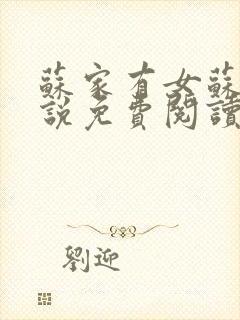 蘇家有女蘇
說免費閱讀
劉迎